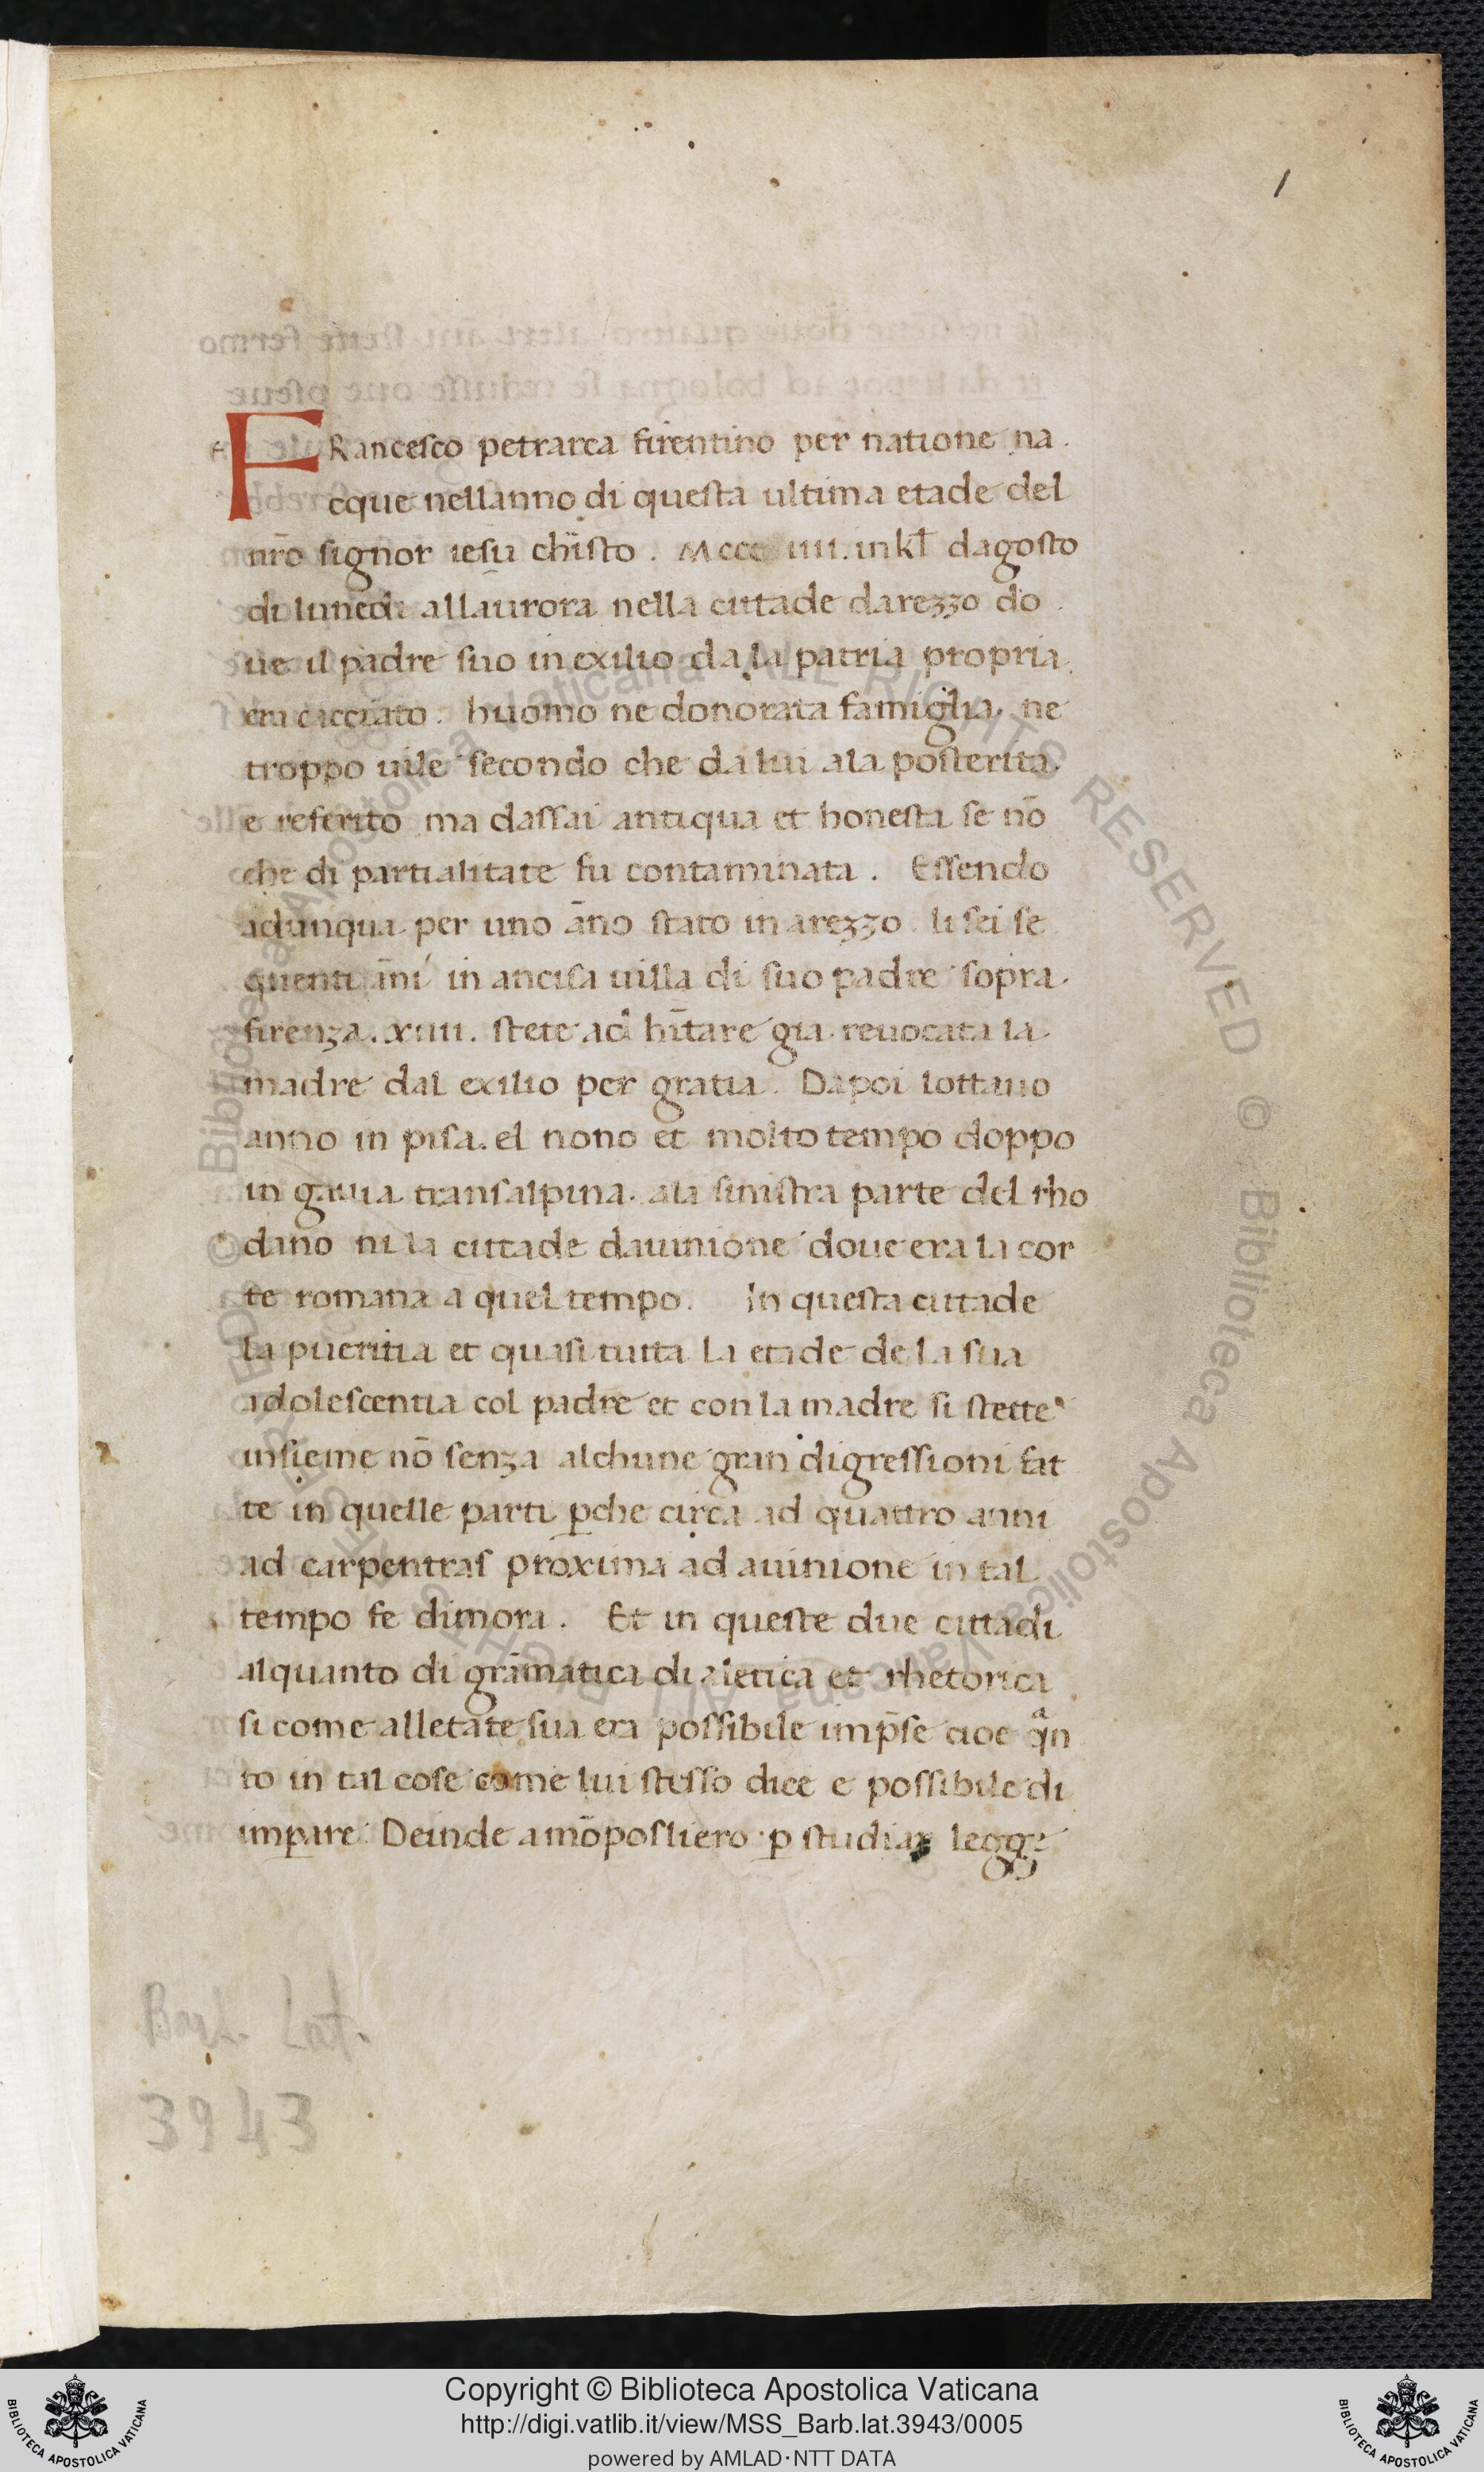 1
FRancesco petrarca firentino per natione na.
cque nellanno di questa ultima etade del
nr̄o signor iesu chr̄isto. Mccc iiii. in kl̄ dagosto
di lunedi allaurora nella cittade darezzo do
ue il padre suo in exilio da la patria propria
era cacciato. huomo ne donorata famiglia. ne
troppo uile secondo che da lui ala posterita
e referito ma dassai antiqua et honesta se nō
che di partialitate fu contaminata. Essendo
adunqua per uno āno stato in arezzo li sei se
quenti āni in ancisa uilla di suo padre sopra
firenza. xiiii. stete ad hītare gia reuocata la
madre dal exilio per gratia. Dapoi lottauo
anno in pisa. el nono et molto tempo doppo
in gallia transalpina. ala sinistra parte del rho
dano ni la cittade dauinione doue era la cor
te romana a quel tempo. In questa cittade
la pueritia et quasi tutta la etade de la sua
adolescentia col padre et con la madre si stette
insieme nō senza alchune gran digressioni fat
te in quelle parti ꝑche circa ad quattro anni
ad carpentras proxima ad auinione in tal
tempo fe dimora. Et in queste due cittadi
alquanto di grāmatica dialetica et rhetorica
si come alletate sua era possibile imp̄se cioe qͣn
to in tal cose come lui stesso dice e possibile di
imꝑare. Deinde a mōposliero ꝑ studiar legge
Barb. Lat.
3943
© Biblioteca Apostolica Vaticana ALL RIGHTS RESERVED © Biblioteca Apostolica Vaticana ALL RIGHTS RESERVED
BIBLIOTECA APOSTOLICA VATICANA
Copyright © Biblioteca Apostolica Vaticana
http://digi.vatlib.it/view/MSS_Barb.lat.3943/0005
powered by AMLAD·NTT DATA
BIBLIOTECA APOSTOLICA VATICANA